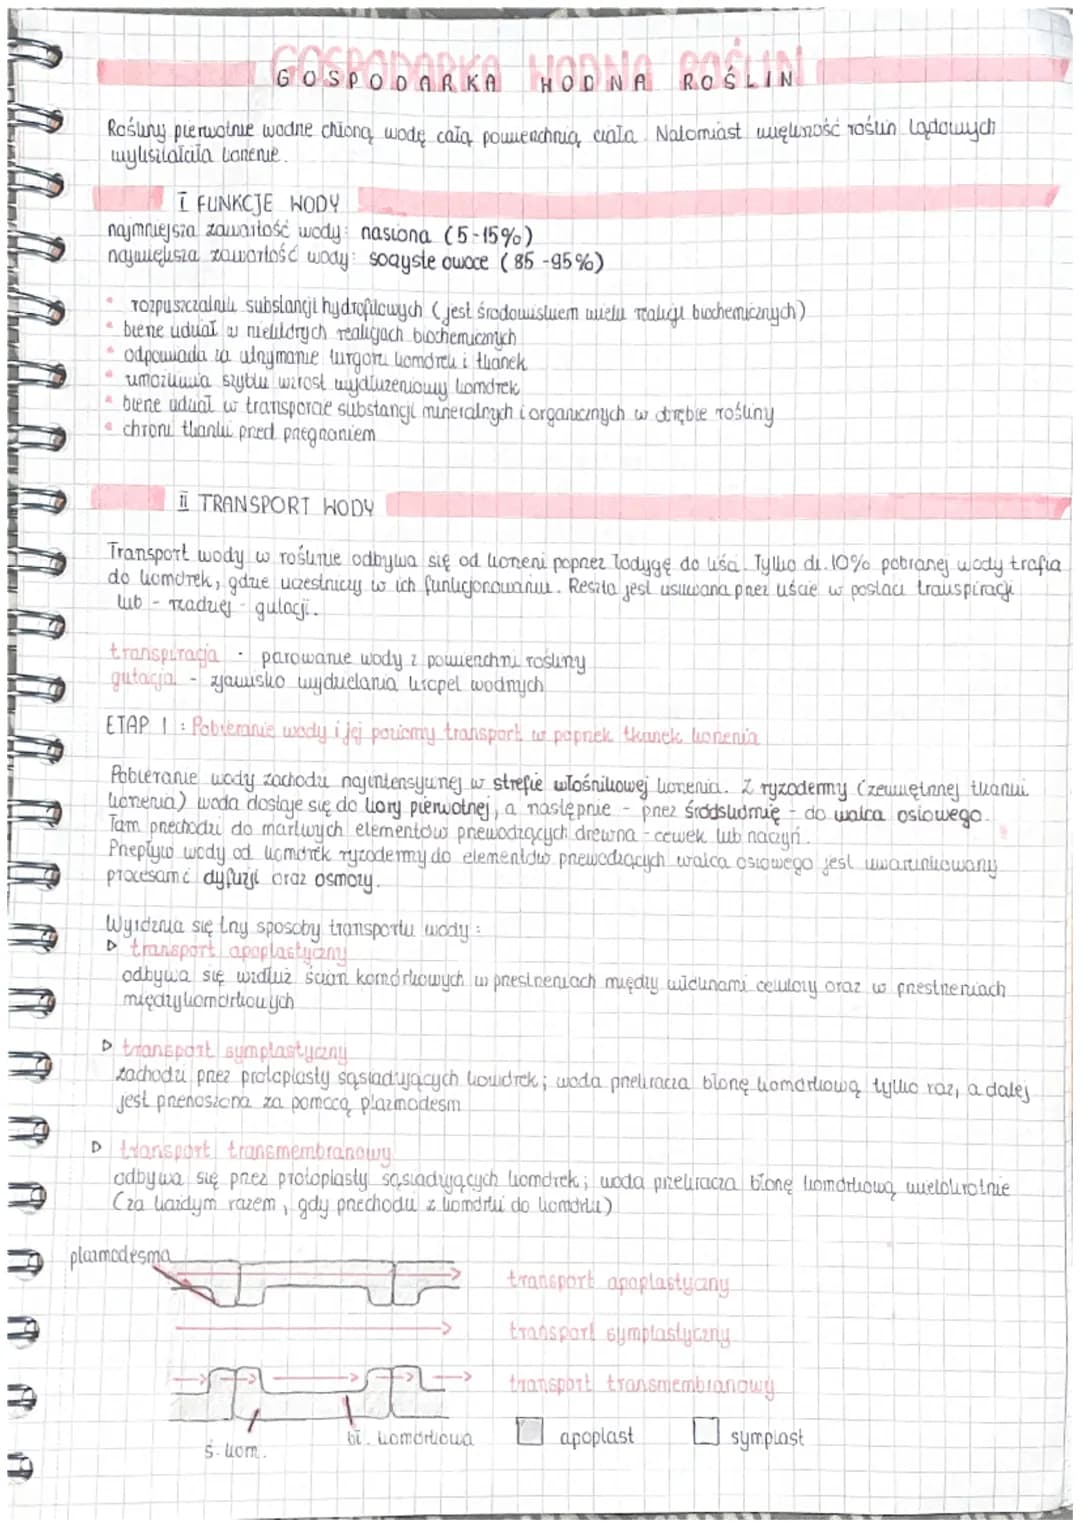 GOSPODARKA WODNA ROŚLIN
GOSPODARKA WODNA ROŚLIN
Rośliny pierwotnie wodne chłoną wodę całą powierzchnią ciała. Natomiast większość roślin lądowych
wykształciła korzenie.
I FUNKCJE WODY
najmniejsza zawartość wody: nasiona (5-15%)
największa zawartość wody: soczyste owoce (85-95%)
• rozpuszczalnik substancji hydrofilowych (jest środowiskiem wielu reakcji biochemicznych)
• bierze udział w niektórych reakcjach biochemicznych
• odpowiada za utrzymanie turgoru komórek i tkanek
• umożliwia szybki wzrost wydłużeniowy komórek
• bierze udział w transporcie substancji mineralnych i organicznych w obrębie rośliny
• chroni tkanki przed przegrzaniem
II TRANSPORT WODY
Transport wody w roślinie odbywa się od korzeni poprzez łodygę do liści. Tylko ok. 10% pobranej wody trafia
do komórek, gdzie uczestniczy w ich funkcjonowaniu. Reszta jest usuwana przez liście w postaci transpiracji
lub - rzadziej - gutacji.
transpiracja - parowanie wody z powierzchni rośliny
gutacja - zjawisko wydzielania kropel wodnych
ETAP I: Pobieranie wody i jej poziomy transport w poprzek tkanek korzenia
Pobieranie wody zachodzi najintensywniej w strefie włośnikowej korzenia. Z ryzodermy (zewnętrznej tkanki
korzenia) woda dostaje się do kory pierwotnej, a następnie - przez śródskórnię - do walca osiowego.
Tam przechodzi do martwych elementów przewodzących drewna - cewek lub naczyń.
Przepływ wody od komórek ryzodermy do elementów przewodzących walca osiowego jest uwarunkowany
procesami dyfuzji oraz osmozy.
Wyróżnia się trzy sposoby transportu wody:
▷ transport apoplastyczny
odbywa się wzdłuż ścian komórkowych w przestrzeniach między włóknami celulozy oraz w przestrzeniach
międzykomórkowych
▷ transport symplastyczny
zachodzi przez protoplasty sąsiadujących komórek; woda przekracza błonę komórkową tylko raz, a dalej
jest przenoszona za pomocą plazmodesm
▷ transport transmembranowy
odbywa się przez protoplasty sąsiadujących komórek; woda przekracza błonę komórkową wielokrotnie
(za każdym razem, gdy przechodzi z komórki do komórki)
plazmodesma
transport apoplastyczny
transport symplastyczny
transport transmembranowy
ś. kom.
bł. komórkowa
apoplast
symplast